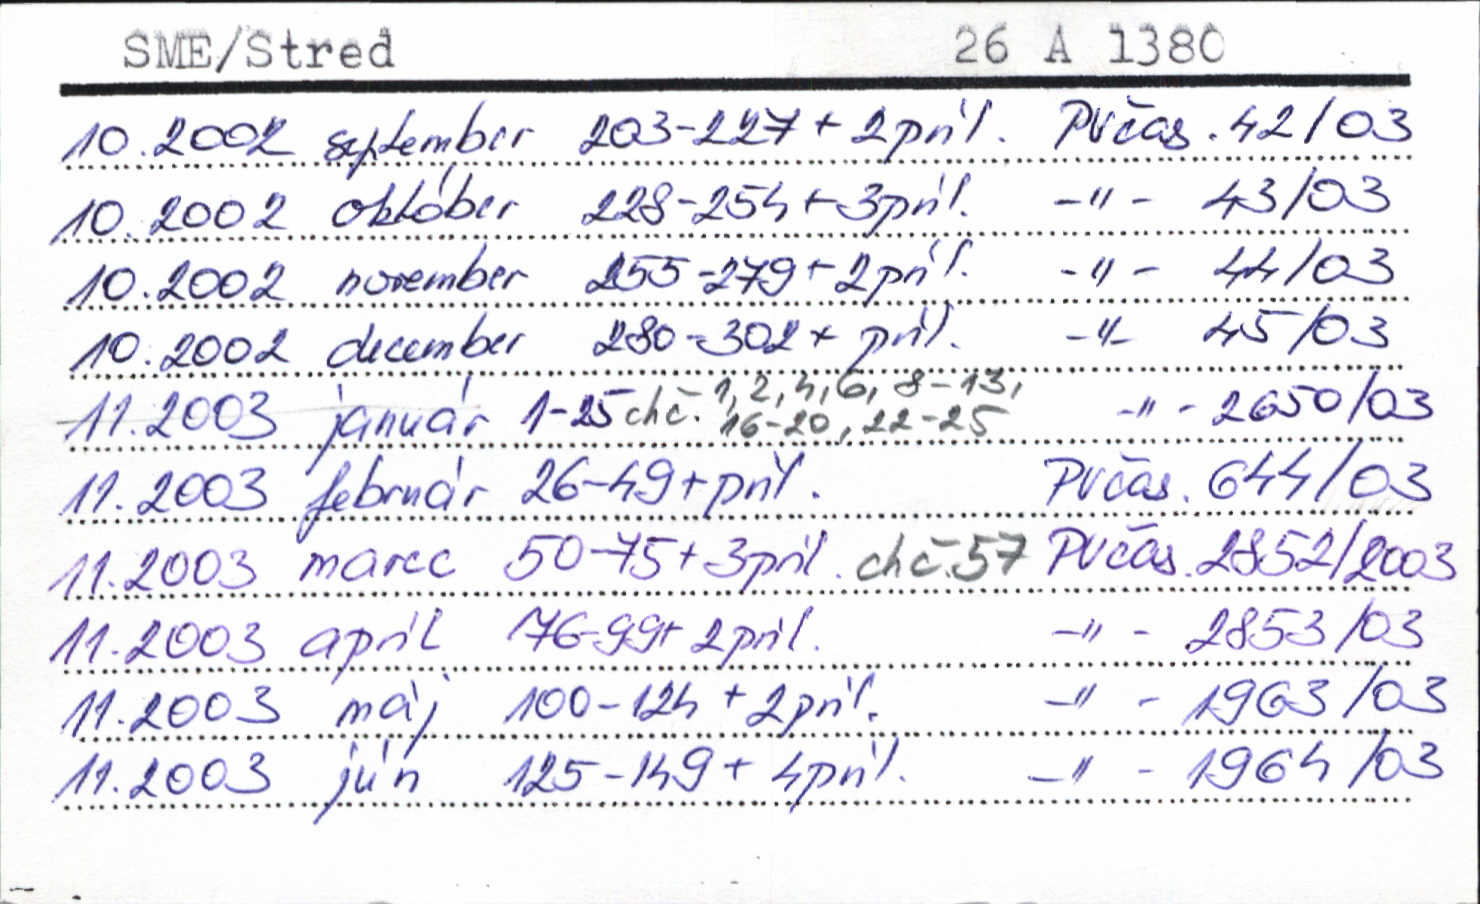 SME/Stred 26 A 1380
10.2002 september 203-227 + 2 príl. PVčas. 42/03
10.2002 október 228-254 + 3 príl. -"- 43/03
10.2002 november 255-279 + 2 príl. -"- 44/03
10.2002 december 280-302 + príl. -"- 45/03
11.2003 január 1-25 chč. 1, 2, 4, 6, 8-13, 16-20, 22-25 -"- 2650/03
11.2003 február 26-49 + príl. PVčas. 644/03
11.2003 marec 50-75 + 3 príl. chč. 57 PVčas. 2852/2003
11.2003 apríl 76-99 + 2 príl. -"- 2853/03
11.2003 máj 100-124 + 2 príl. -"- 1963/03
11.2003 jún 125-149 + 4 príl. -"- 1964/03